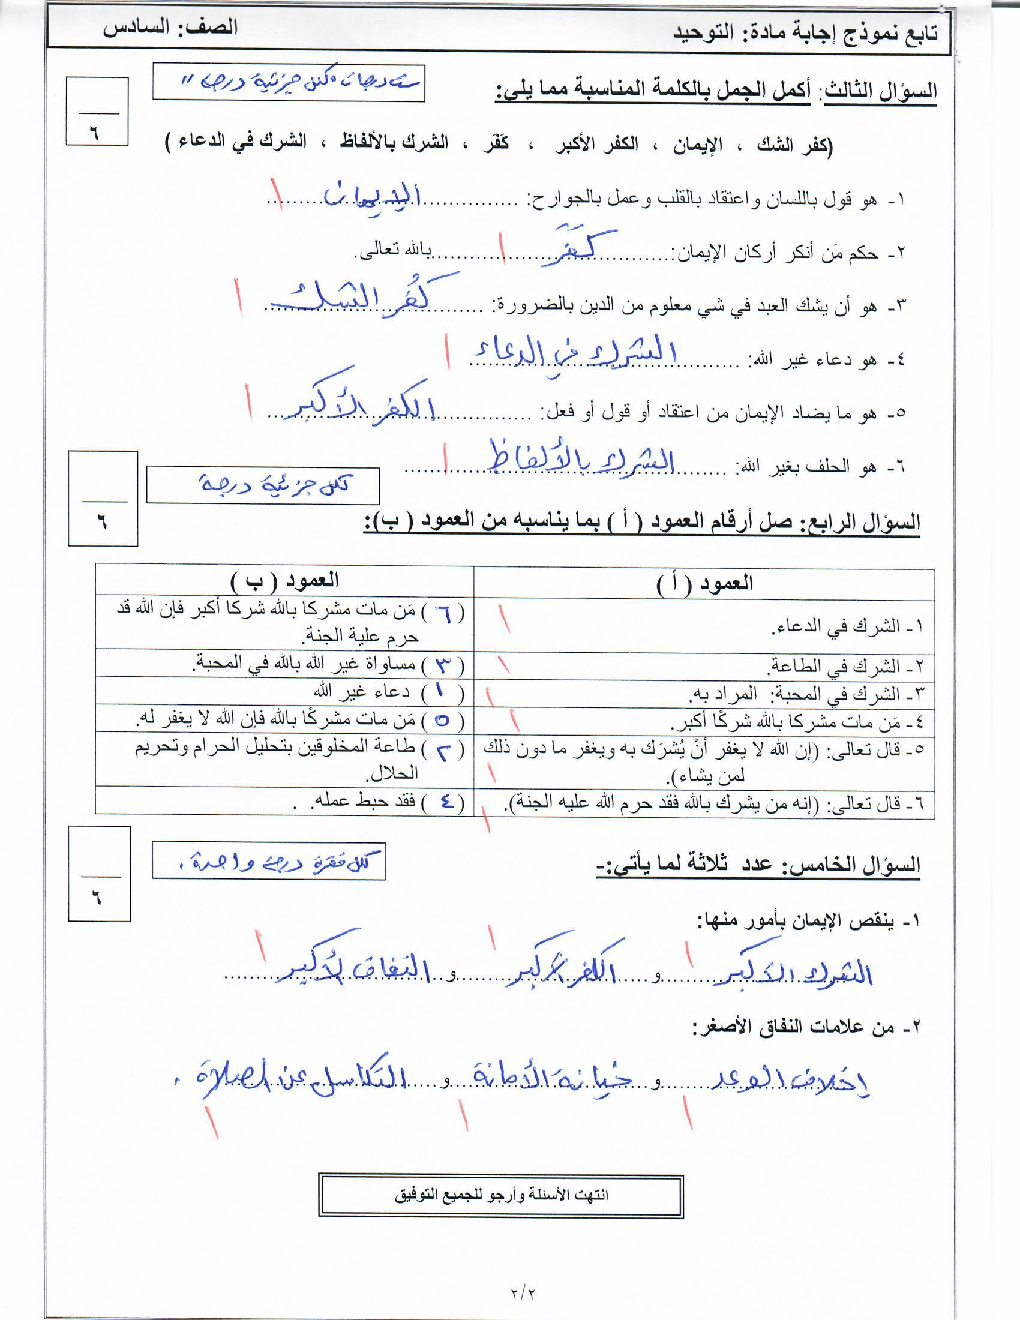 تابع نموذج إجابة مادة: التوحيد الصف: السادس
السؤال الثالث: أكمل الجمل بالكلمة المناسبة مما يلي:
ست درجات "لكل جزئية درجة"
٦
(كفر الشك ، الإيمان ، الكفر الأكبر ، كَفَر ، الشرك بالألفاظ ، الشرك في الدعاء )
١- هو قول باللسان واعتقاد بالقلب وعمل بالجوارح: ............الإيمان............
٢- حكم مَن أنكر أركان الإيمان:............كَفَرَ............بالله تعالى.
٣- هو أن يشك العبد في شي معلوم من الدين بالضرورة: ............كُفر الشك............
٤- هو دعاء غير الله: ............الشرك في الدعاء............
٥- هو ما يضاد الإيمان من اعتقاد أو قول أو فعل: ............الكفر الأكبر............
٦- هو الحلف بغير الله: ............الشرك بالألفاظ............
لكل جزئية درجة
٦
السؤال الرابع: صل أرقام العمود ( أ ) بما يناسبه من العمود ( ب):
العمود ( أ ) العمود ( ب )
١- الشرك في الدعاء. ( ٦ ) مَن مات مشركا بالله شركا أكبر فإن الله قد
حرم علية الجنة.
٢- الشرك في الطاعة. ( ٣ ) مساواة غير الله بالله في المحبة.
٣- الشرك في المحبة: المراد به. ( ١ ) دعاء غير الله
٤- مَن مات مشركا بالله شركًا أكبر. ( ٥ ) مَن مات مشركًا بالله فإن الله لا يغفر له.
٥- قال تعالى: (إن الله لا يغفر أنْ يُشرَك به ويغفر ما دون ذلك ( ٢ ) طاعة المخلوقين بتحليل الحرام وتحريم
لمن يشاء). الحلال.
٦- قال تعالى: (إنه من يشرك بالله فقد حرم الله عليه الجنة). ( ٤ ) فقد حبط عمله. .
السؤال الخامس: عدد ثلاثة لما يأتي:-
لكل فقرة درجة واحدة.
٦
١- ينقص الإيمان بأمور منها:
الشرك الأكبر......و......الكفر الأكبر......و......النفاق الأكبر......
٢- من علامات النفاق الأصغر:
إخلاف الوعد......و......خيانة الأمانة......و......التكاسل عن الصلاة .
انتهت الأسئلة وأرجو للجميع التوفيق
٢/٢